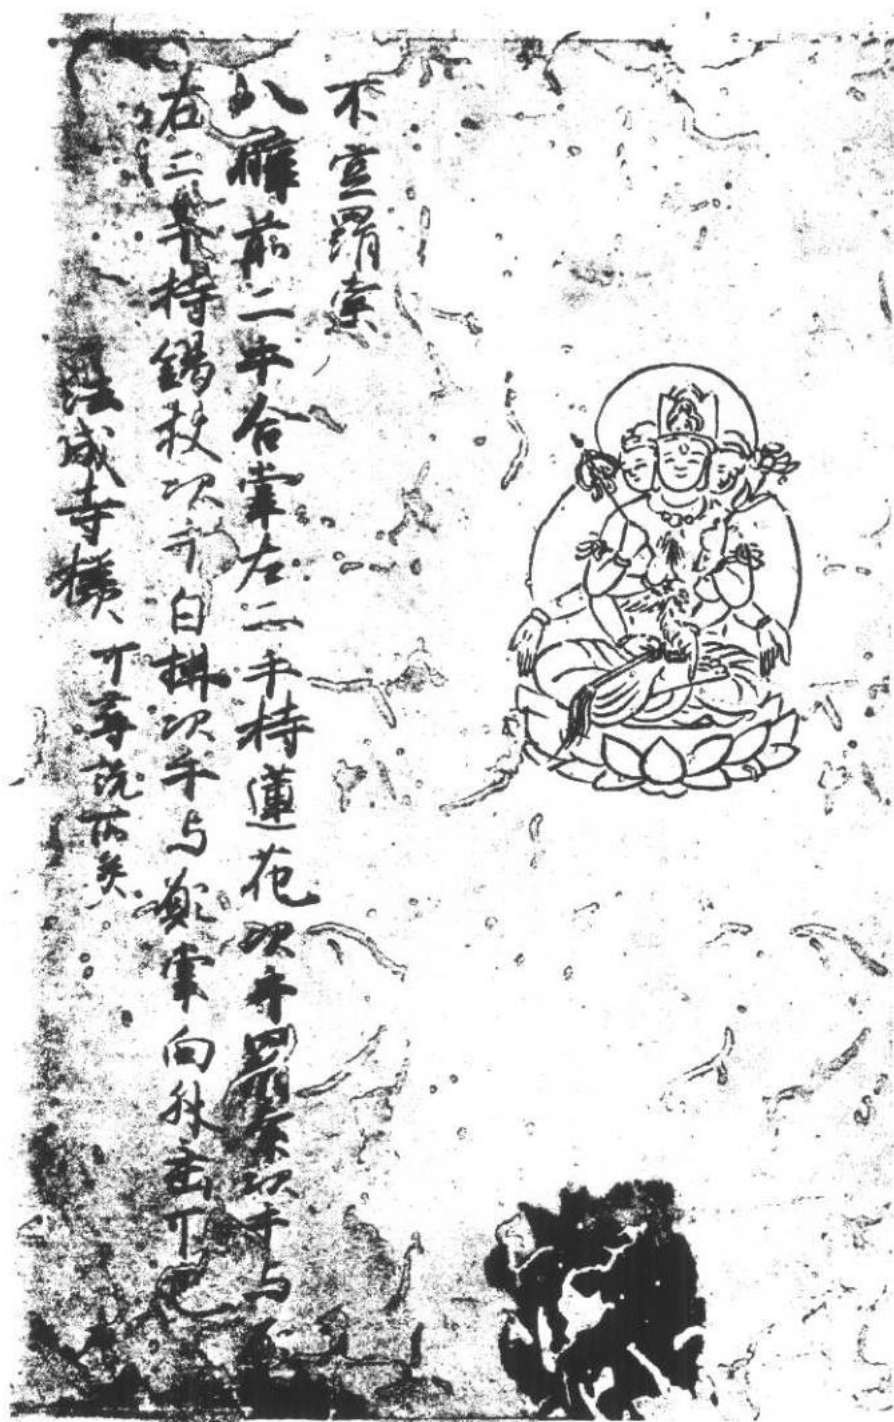 不空羂索
八臂前二手合掌左二手持蓮花次手羂索次手与
右二手持錫杖次手白拂次手与願掌向外垂下也
法成寺様